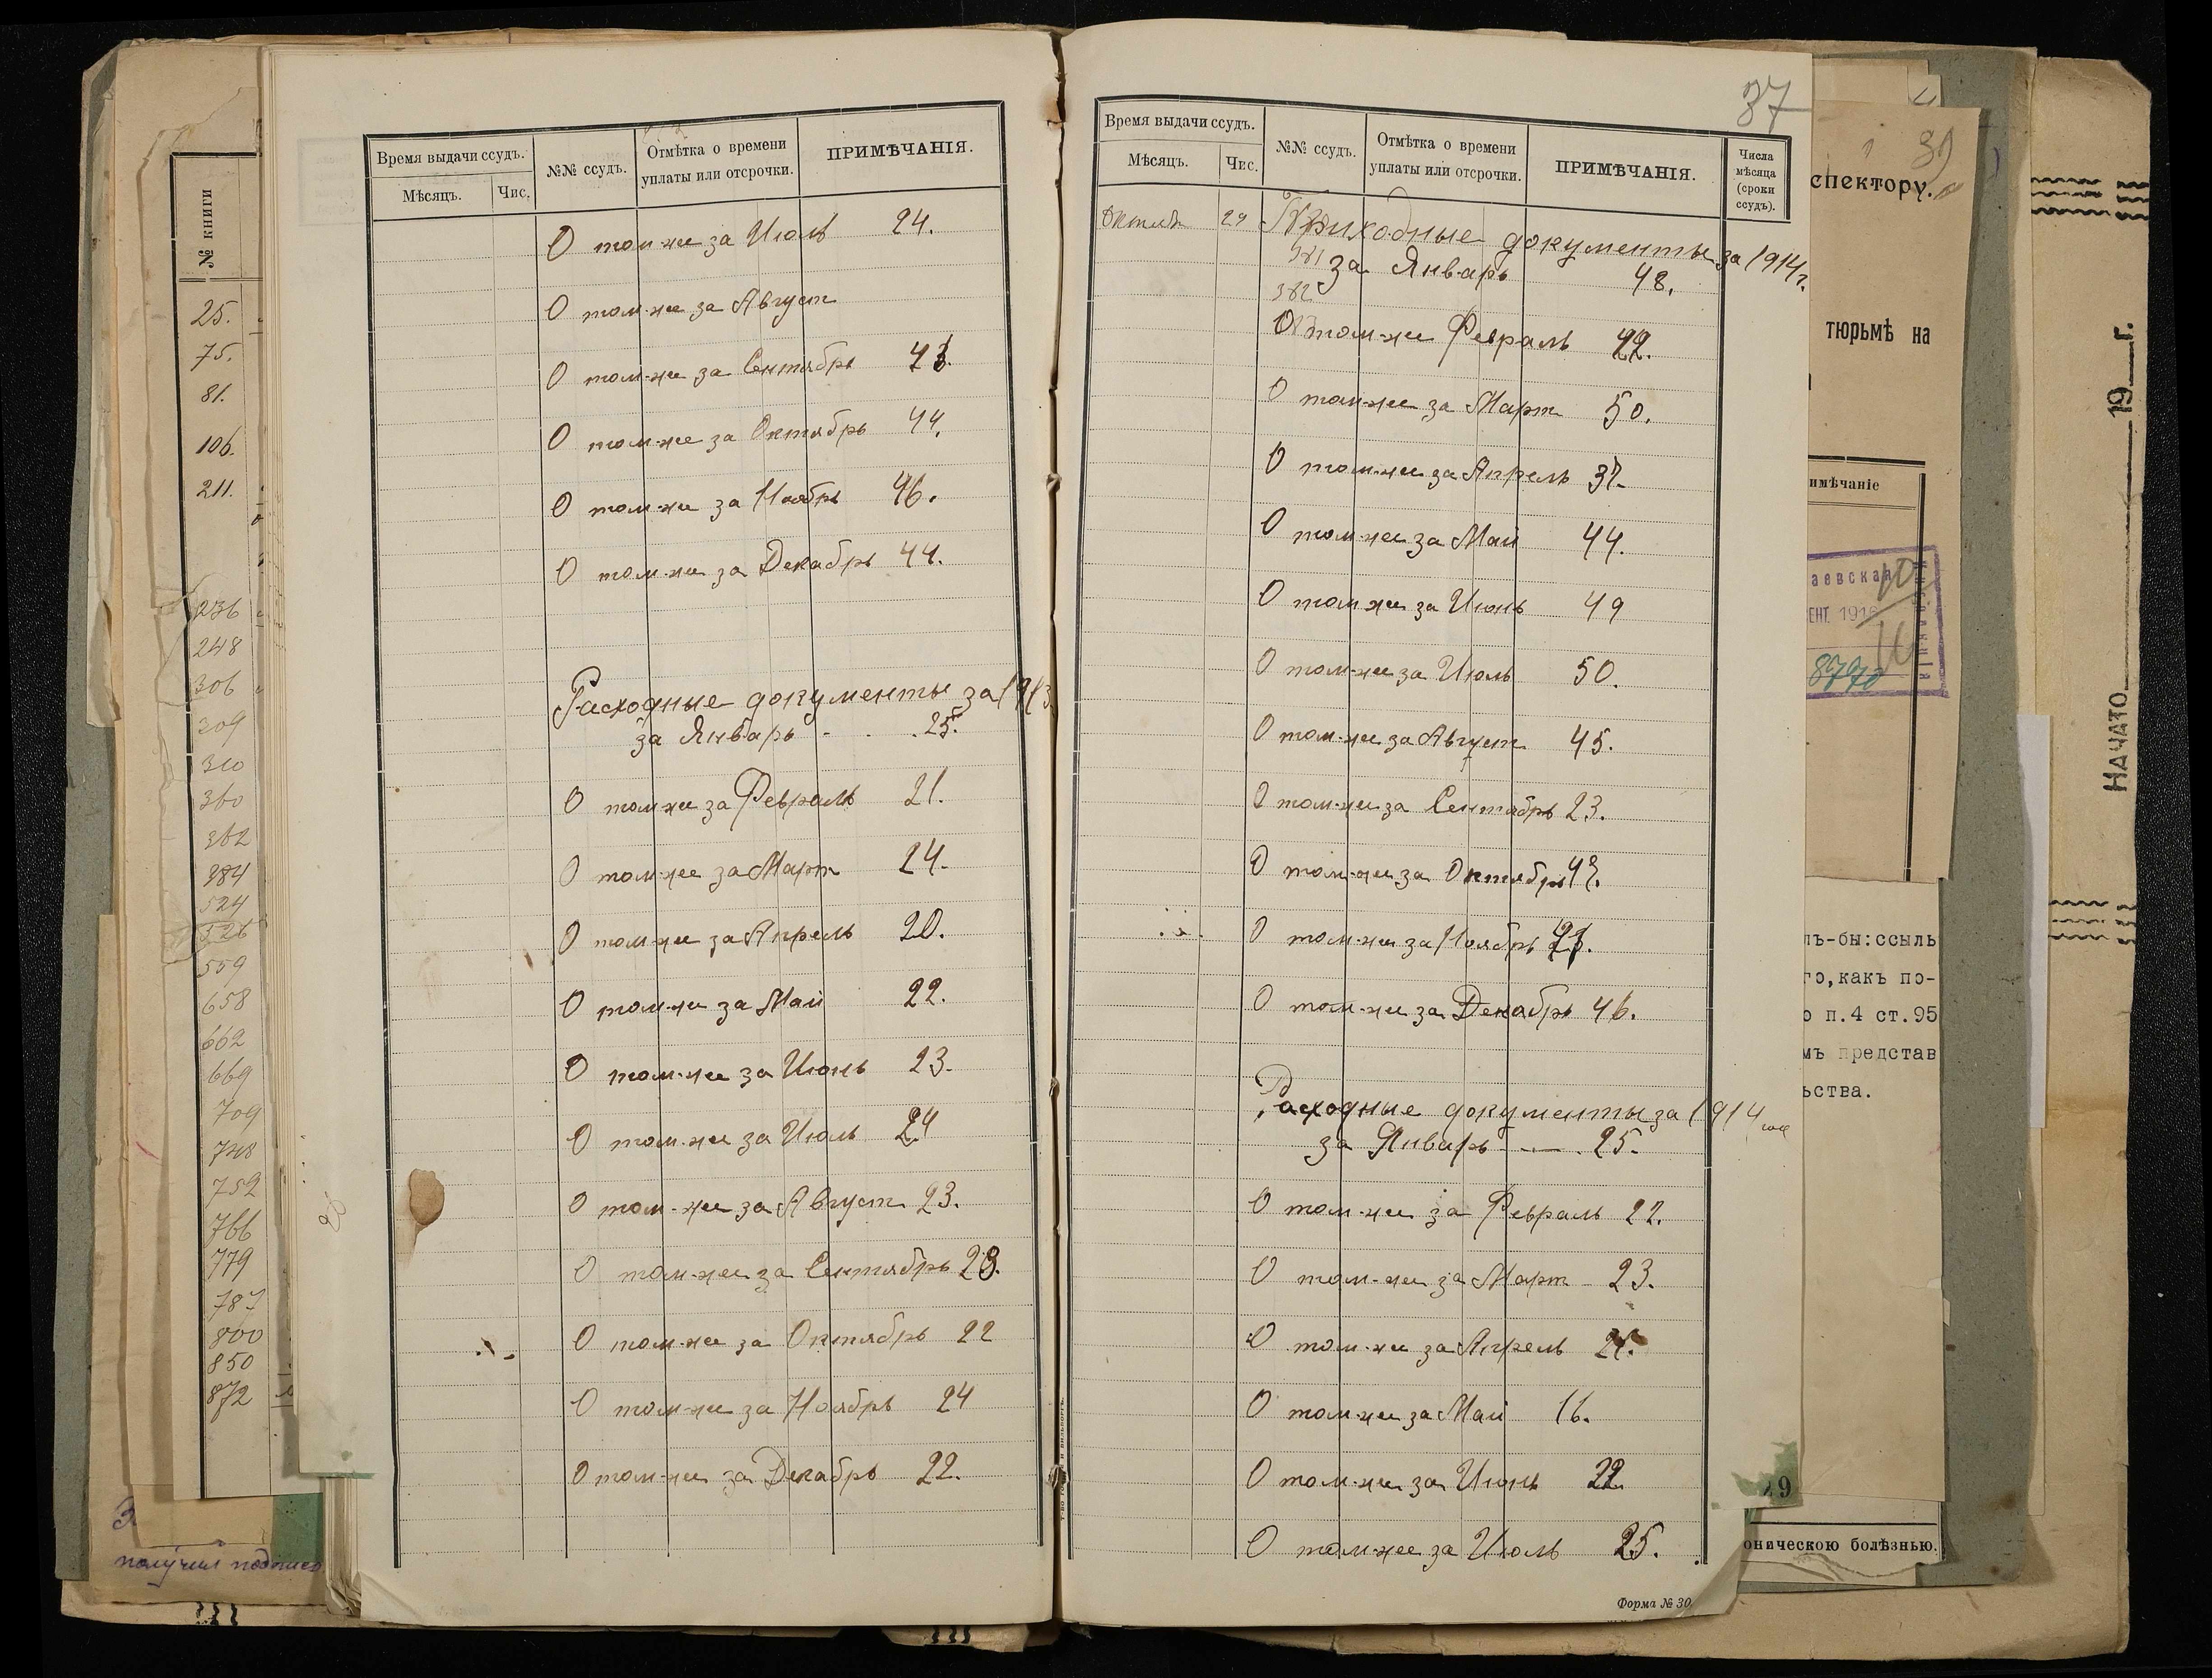 № книги
25.
75.
81.
106.
211.
236
248
306
309
310
360
362
384
524
526
559
658
662
669
709
748
759
766
779
787
800
850
872
получил
Время выдачи ссудъ.
Мѣсяцъ.
Чис.
№№ ссудъ.
Отмѣтка о времени
уплаты или отсрочки.
ПРИМѢЧАНІЯ.
О том-же за Июль 24.
О том-же за Август
О том-же за Сентябрь 43.
О том-же за Октябрь 44.
О том-же за Ноябрь 46.
О том-же за Декабрь 44.
Расходные документы за 1913
за Январь - . . 25.
О том-же за Февраль 21.
О том-же за Март 24.
О том-же за Апрель 20.
О том-же за Май 22.
О том-же за Июнь 23.
О том-же за Июль 24
О том-же за Август 23.
О том-же за Сентябрь 23.
О том-же за Октябрь 22
О том-же за Ноябрь 24
О том-же за Декабрь 22.
37
Время выдачи ссудъ.
Мѣсяцъ.
Чис.
№№ ссудъ.
Отмѣтка о времени
уплаты или отсрочки.
ПРИМѢЧАНІЯ.
Числа
мѣсяца
(сроки
ссудъ).
29 Приходные документы за 1914 г.
381
за Январь 48.
382
О том-же Февраль
О том-же за Март 50.
О том-же за Апрель 37.
О том-же за Май 44.
О том-же за Июнь 49
О том-же за Июль 50.
О том-же за Август 45.
О том-же за Сентябрь 23.
О том-же за Октябрь
О том-же за Ноябрь
О том-же за Декабрь 46.
Расходные документы за 1914
за Январь - — . 25.
О том-же за Февраль 22.
О том-же за Март 23.
О том-же за Апрель
О том-же за Май 16.
О том-же за Июнь 22
О том-же за Июль 25.
Форма № 30
спектору.
тюрьмѣ на
имѣчаніе
аевская
ЕНТ. 1916
8770
лъ-бы:ссыль
го,какъ по-
о п.4 ст.95
мъ представ
ьства.
оническою болѣзнью.
НАЧАТО 19 г.